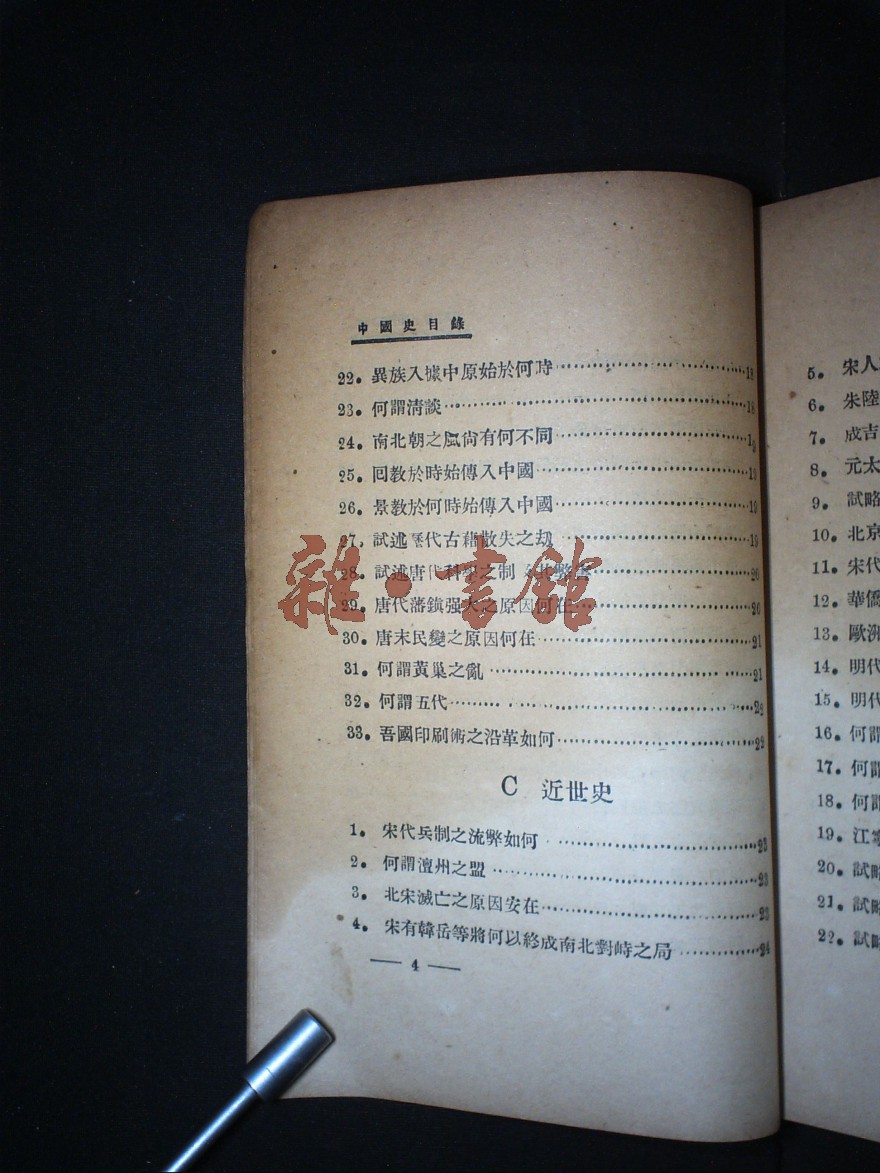 中國史目錄
22. 異族入據中原始於何時 18
23. 何謂清談 18
24. 南北朝之風尚有何不同 19
25. 回教於時始傳入中國 19
26. 景教於何時始傳入中國 19
27. 試述歷代古籍散失之劫 19
28. 試述唐代科學之制 其弊害 20
29. 唐代藩鎮强大之原因何在 20
30. 唐末民變之原因何在 21
31. 何謂黃巢之亂 21
32. 何謂五代 22
33. 吾國印刷術之沿革如何 22
C 近世史
1. 宋代兵制之流弊如何 23
2. 何謂澶州之盟 23
3. 北宋滅亡之原因安在 23
4. 宋有韓岳等將何以終成南北對峙之局 24
— 4 —
雜·書館
5. 宋人
6. 朱陸
7. 成吉
8. 元太
9. 試略
10. 北京
11. 宋代
12. 華僑
13. 歐洲
14. 明代
15. 明代
16. 何謂
17. 何謂
18. 何謂
19. 江寧
20. 試略
21. 試略
22. 試略